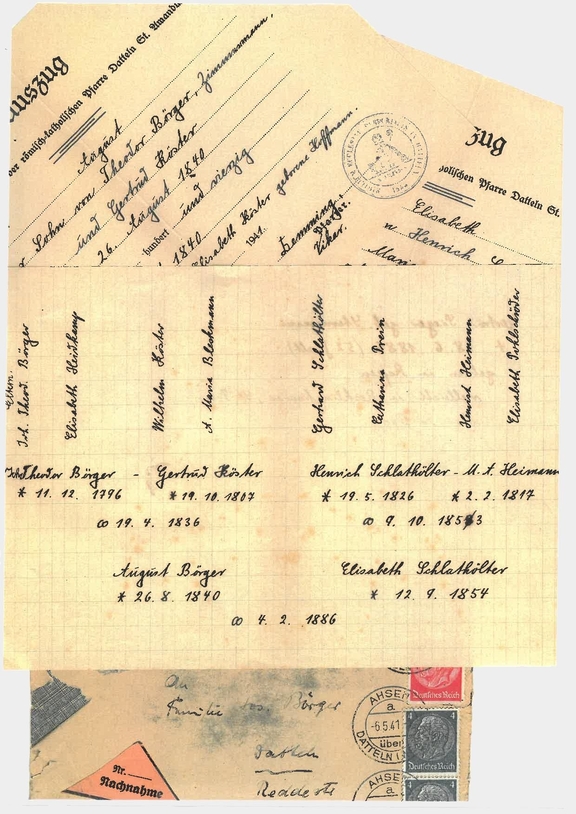 Auszug
der römisch-katholischen Pfarre Datteln St. Amandus
August
Sohn von Theodor Börger, Zimmermann,
und Gertrud Köster
26. August 1840
hundert und vierzig
1840
Elisabeth Köster geborene Hoffmann.
1941.
Demming
Pfarr
Vikar.
zug
holischen Pfarre Datteln St.
Elisabeth
n Henrich
Mari
Eltern:
Joh. Theod. Börger
Elisabeth Heitkamp
Wilhelm Köster
A. Maria Bleckmann
Gerhard Schlathölter
Catharina Prein
Henrich Heimann
Elisabeth Pohlschröder
Joh. Theodor Börger - Gertrud Köster
* 11. 12. 1796 * 19. 10. 1807
∞ 19. 4. 1836
Henrich Schlathölter - M. A. Heimann
* 19. 5. 1826 * 2. 2. 1817
∞ 9. 10. 1853
August Börger
* 26. 8. 1840
Elisabeth Schlathölter
* 12. 9. 1854
∞ 4. 2. 1886
An
Familie Jos. Börger
Datteln
Nr.
Nachnahme
Deutsches Reich
AHSEN
a
-6.5.41
über
DATTELN
4 4
Deutsches Reich
AHSE
a
4 4